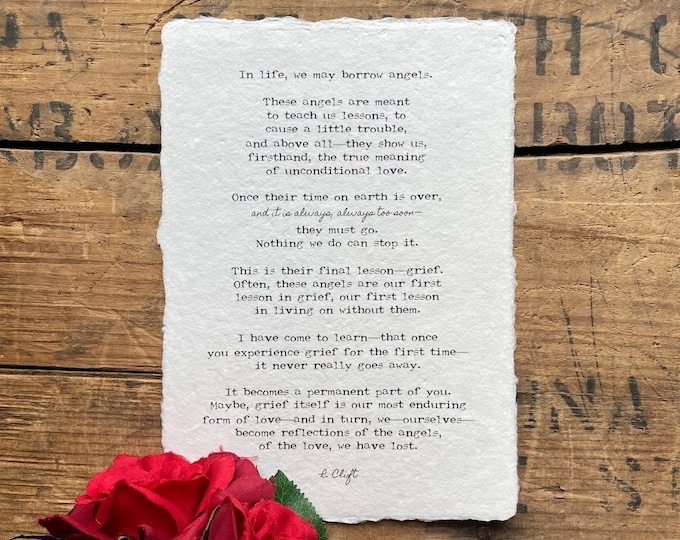 In life, we may borrow angels.
These angels are meant
to teach us lessons, to
cause a little trouble,
and above all—they show us,
firsthand, the true meaning
of unconditional love.
Once their time on earth is over,
and it is always, always too soon—
they must go.
Nothing we do can stop it.
This is their final lesson—grief.
Often, these angels are our first
lesson in grief, our first lesson
in living on without them.
I have come to learn—that once
you experience grief for the first time—
it never really goes away.
It becomes a permanent part of you.
Maybe, grief itself is our most enduring
form of love—and in turn, we—ourselves—
become reflections of the angels,
of the love, we have lost.
Clift